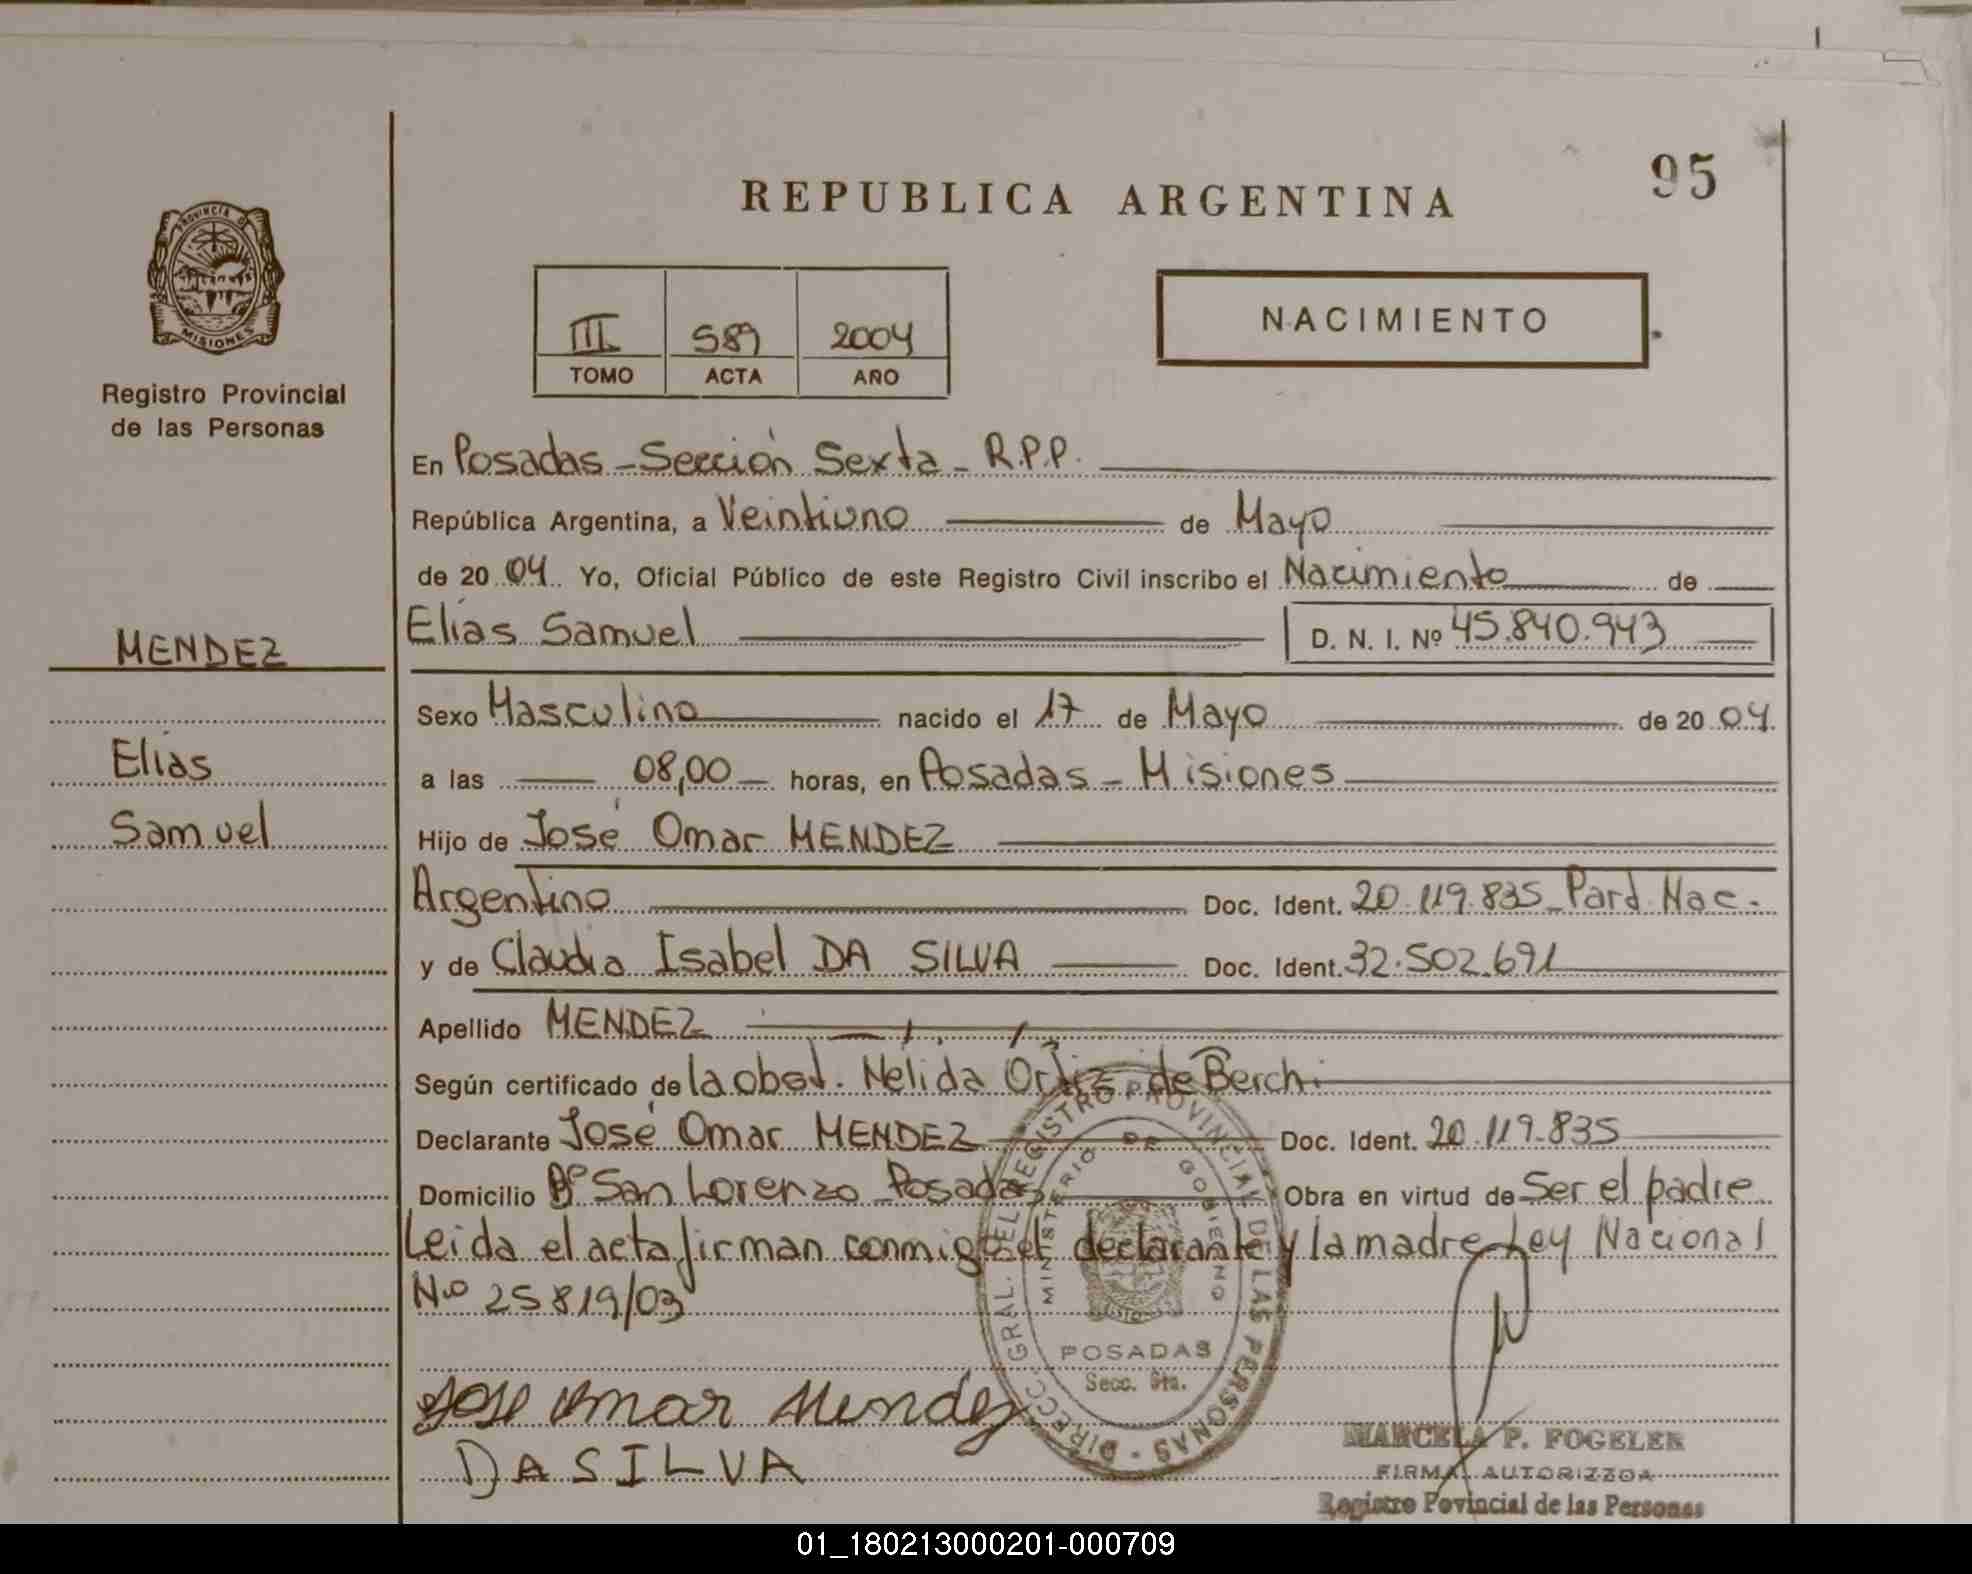 95
REPUBLICA ARGENTINA
PROVINCIA DE
MISIONES
Registro Provincial
de las Personas
III 589 2004
TOMO ACTA AÑO
NACIMIENTO
En Posadas - Sección Sexta - R.P.P.
República Argentina, a Veintiuno de Mayo
de 20 04 Yo, Oficial Público de este Registro Civil inscribo el Nacimiento de
Elías Samuel D. N. I. Nº 45.840.943
MENDEZ
Sexo Masculino nacido el 17 de Mayo de 20 04.
Elias
a las 08,00 horas, en Posadas - Misiones
Samuel
Hijo de José Omar MENDEZ
Argentino Doc. Ident. 20.119.835 - Pard. Nac.
y de Claudia Isabel DA SILVA Doc. Ident. 32.502.691
Apellido MENDEZ
Según certificado de la obst. Nélida Ortiz de Berchi
Declarante José Omar MENDEZ Doc. Ident. 20.119.835
Domicilio Bº San Lorenzo - Posadas Obra en virtud de Ser el padre
Leida el acta firman conmigo el declarante y la madre Ley Nacional
Nº 25819/03
DIRECC. GRAL. DEL REGISTRO PROVINCIAL DE LAS PERSONAS
MINISTERIO DE GOBIERNO
POSADAS
Secc. 6ta.
Jose Omar Mendez
DA SILVA
MARCELA P. FOGELER
FIRMA AUTORIZZDA
Registro Povincial de las Personas
01_180213000201-000709